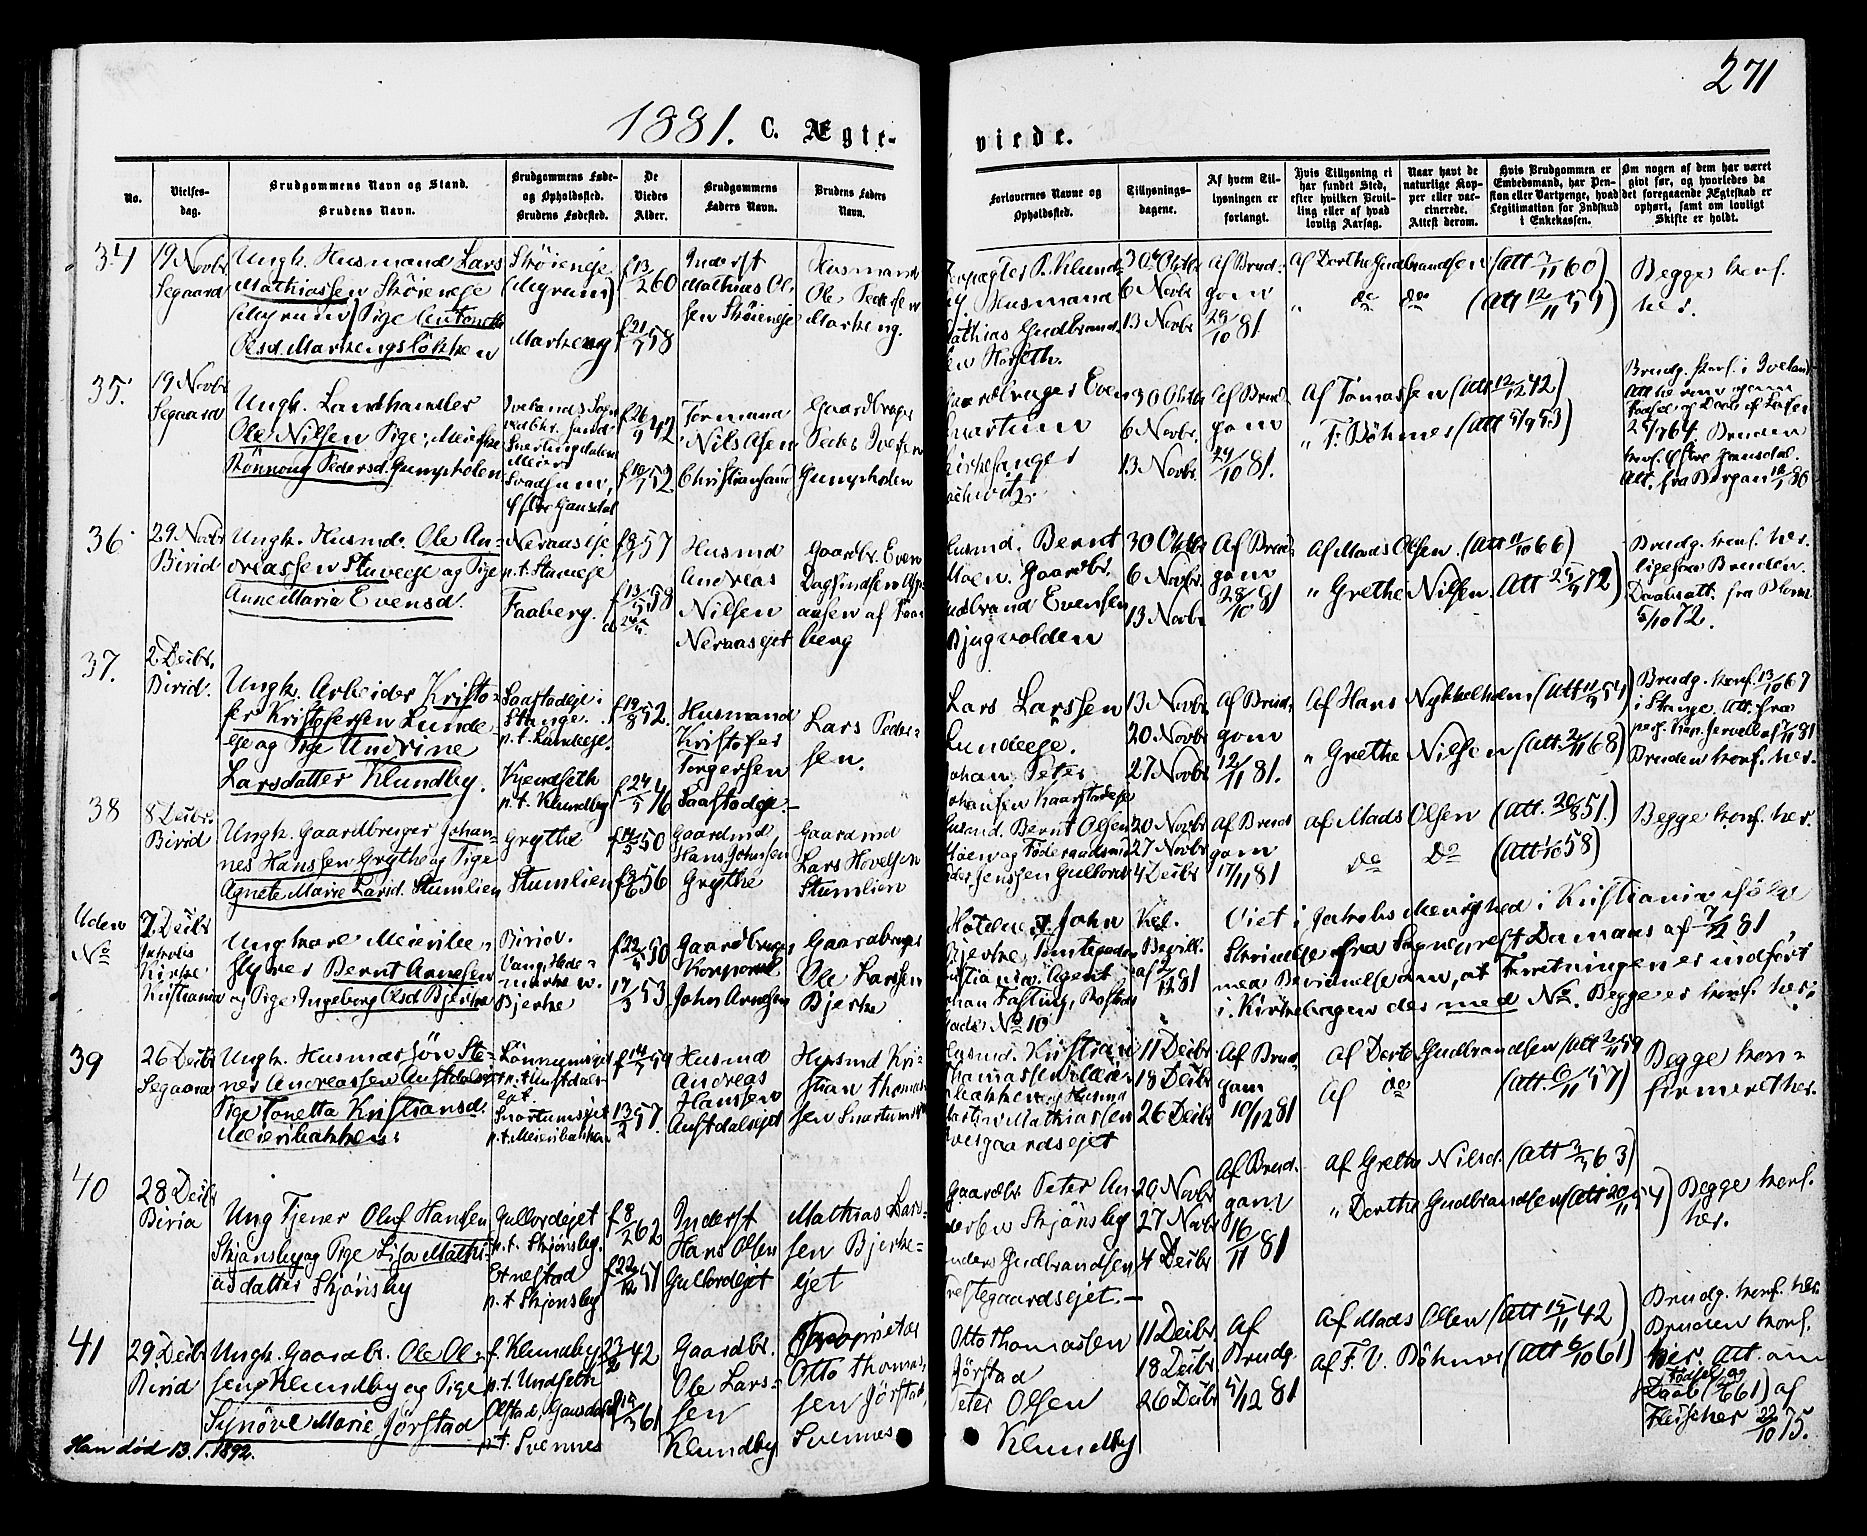 271
1881. C. Ægte-
viede.
No.
Vielses-
dag.
Brudgommens Navn og Stand.
Brudens Navn.
Brudgommens Føde-
og Opholdssted.
Brudens Fødested.
De
Viedes
Alder.
Brudgommens
Faders Navn.
Brudens Faders
Navn.
Forlovernes Navne og
Opholdssted.
Tillysnings-
dagene.
Af hvem Til-
lysningen er
forlangt.
Hvis Tillysning ei
har fundet Sted,
efter hvilken Bevil-
ling eller af hvad
lovlig Aarsag.
Naar havt de
naturlige Kop-
per eller vac-
cinerede.
Attest derom.
Hvis Brudgommen er
Embedsmand, har Pen-
sion eller Vartpenge, hvad
Legitimation for Indskud
i Enkekassen.
Om nogen af dem har været
givt før, og hvorledes da
det foregaaende Ægteskab er
ophørt, samt om lovligt
Skifte er holdt.
34
19 Novbr
Segaard
Ungk. Husmand Lars
Mathiassen Sköieneje
Pige Antonette
Sköieneje
Markeng
f 13/2 60
f 21/7 58
Inderst
Mathias Ol-
sen Sköieneje
Husmand
Ole Pedersen
Markeng.
Husmand
Mathias Gudbrand-
30 Oktbr
6 Novbr
13 Novbr
Af Brud-
gom
29/10 81
Af Dorthe Gudbrandsen (Att 7/11 60)
" do do (Att 12/11 59)
Begge konf.
her.
35.
19 Novbr
Segaard
Ungk. Landhandler
Ole Nilsen Pige, Meierske
Rönnoug Pedersd. Gumpholen
Östre Gausdal
f 26/9 42
f 10/7 52.
Formand
Nils Olsen
Christiansand
Gaardbruger
Peder Iversen
Gumpholen
Gaardbruger Even
Snartum
Kirkesanger
30 Oktbr
6 Novbr.
13 Novbr.
Af Brud-
gom
29/10 81.
Af Tomassen (Att 12/12 42.)
" F. Böhmer (Att 5/9 53)
Brudg. konf. i Iveland
Bruden
konf. Östre Gausdal.
36
29 Novbr
Birid
Ungk. Husmd. Ole An-
dreassen Stuveeje og Pige
Anne Maria Evensd.
Neraaseje
p.t. Stuveeje
Faaberg.
f 8/7 57
f 13/5 58
Husmd
Andreas
Nilsen
Neraasejet
Gaardbr. Even
af Faa-
berg
Husmd. Bernt
Moen. Gaardbr.
Gudbrand Evensen
Bjugvolden
30 Oktbr
6 Novbr.
13 Novbr
Af Brud-
gom
28/10 81
Af Mads Olsen. (Att 11/10 66)
" Grethe Nilsen. (Att 25/9 72)
Brudg. konf. her.
ligesaa Bruden.
5/10 72.
37.
2 Deibr.
Birid.
Ungk. Arbeider Kristo-
fer Kristofersen Lunde-
eje og Pige Andrine
Larsdatter Klundby.
Saastadeje i
Stange.
p.t. Lundeeje.
Kyendseth
p.t. Klundby
f 19/8 52.
f 24/5 46
Husmand
Kristofer
Torgersen
Saastadeje
Lars Peder-
sen.
Lars Larssen
Lundeeje.
Johan Peter
Johansen Kaarstadeje
13 Novbr
20 Novbr
27 Novbr
Af Brud-
gom
12/11 81.
Af Hans Nykkelholm (Att 11/9 54)
" Grethe Nilsen (Att. 2/11 68)
Brudg. konf. 13/10 67
i Stange. Att. fra
Bruden konf. her.
38
8 Deibr.
Birid
Ungk. Gaardbruger Johan-
nes Hanssen Grythe og Pige
Agnete Marie Larsd. Stumlien
Grythe
Stumlien
f 14/5 50
f 3/6 56
Gaardmd
Hans Johnsen
Grythe
Gaardmd
Lars Hovelsen
Stumlien
Husmd. Bernt Olsen
Moen og Föderaadsmd
Jenssen Gullord
20 Novbr
27 Novbr
4 Deibr
Af Brud-
gom
17/11 81
Af Mads Olsen (Att. 20/8 51.)
do do (Att 58)
Begge konf. her.
Uden
No
7. Deibr
Jakobs
Kirke
Kristiania
Ungkarl Meieribe-
styrer Bernt Arnesen
og Pige Ingeborg Olsd Bjerke
Birid.
Vang, Hede-
marken.
Bjerke
f 22/4 50
17/3 53.
Gaardbruger
Korporal
John Arnesen
Gaardbruger
Ole Larsen
Bjerke
John
Bjerke,
Kristiania. Agent
No 10
Kgl.
Bevill.
af 2/12 81
Viet i Jakobs Menighed i Kristiania ifölge
Skrivelse fra Sogneprest Damaas af 7/12 81
med Bemærkelse om, at Forretningen er indfört
i Kirkebogen der med No. Begge er konf. her.
39
26 Deibr
Segaard
Ungk. Husmandssön Ste-
ner Andreassen Austdalsejet
Pige Tonetta Kristiansd.
Meieribakken.
p.t. Austdals-
ejet
Snartumsejet
p.t. Meieribakken
f 14/7 59
13/2 57.
Husmd
Andreas
Hanssen
Austdalsejet
Husmd Kri-
stian Thomas-
sen Snartumsejet
Husmd. Kristian
Thomassen Meieri-
bakken og Husmd
Martin Mathiassen
11 Deibr
18 Deibr
26 Deibr
Af Brud-
gom
10/12 81
Af Dorte Gudbrandsen (Att 2/11 59
Af do (Att. 6/11 57)
Begge kon-
firmeret her.
40
28 Deibr
Birid
Ung Tjener Oluf Hansen
Skjönsby og Pige Lisa Mathi-
asdatter Skjönsby
Gullordejet
p.t. Skjönsby.
Etnestad
p.t Skjönsby
f 8/2 62
f 22/12 51
Inderst
Hans Olsen
Gullordejet
Mathias Lars-
sen Bjerke-
ejet
Gaardbr. Peter An-
dersen Skjönsby
Anders Gudbrandsen
Prestegaardsejet.
20 Novbr
27 Novbr
4 Deibr
Af Brud-
gom
16/11 81
Af Grethe Nilsd. (Att 3/7 63)
" Dorthe Gudbrandsen (Att 20/11 54)
Begge konf.
her.
41
29. Deibr
Birid
Ungk. Gaardbr. Ole Ol-
sen Klundby og Pige
Synöve Marie Jörstad
f. Klundby
p.t. Undseth
Olstad, Gausdal
p.t. Svennes
23/2 42
f 15/3 61
Gaardbr.
Ole Lars-
sen
Klundby
Proprietær
Otto Thomas-
sen Jörstad,
Svennes
Otto Thomassen
Jörstad
Peter Olsen
Klundby
11 Deibr
18 Deibr
26 Deibr
Af
Brudg.
5/12 81
Af Mads Olsen (Att 15/11 42)
Af F. V. Böhmer (Att 6/10 61)
Brudg. konf. her
Bruden konf.
her. Att. om
Födsel og
Daab af
Fleischer 22/10 75.
Han död 13.1.1892.